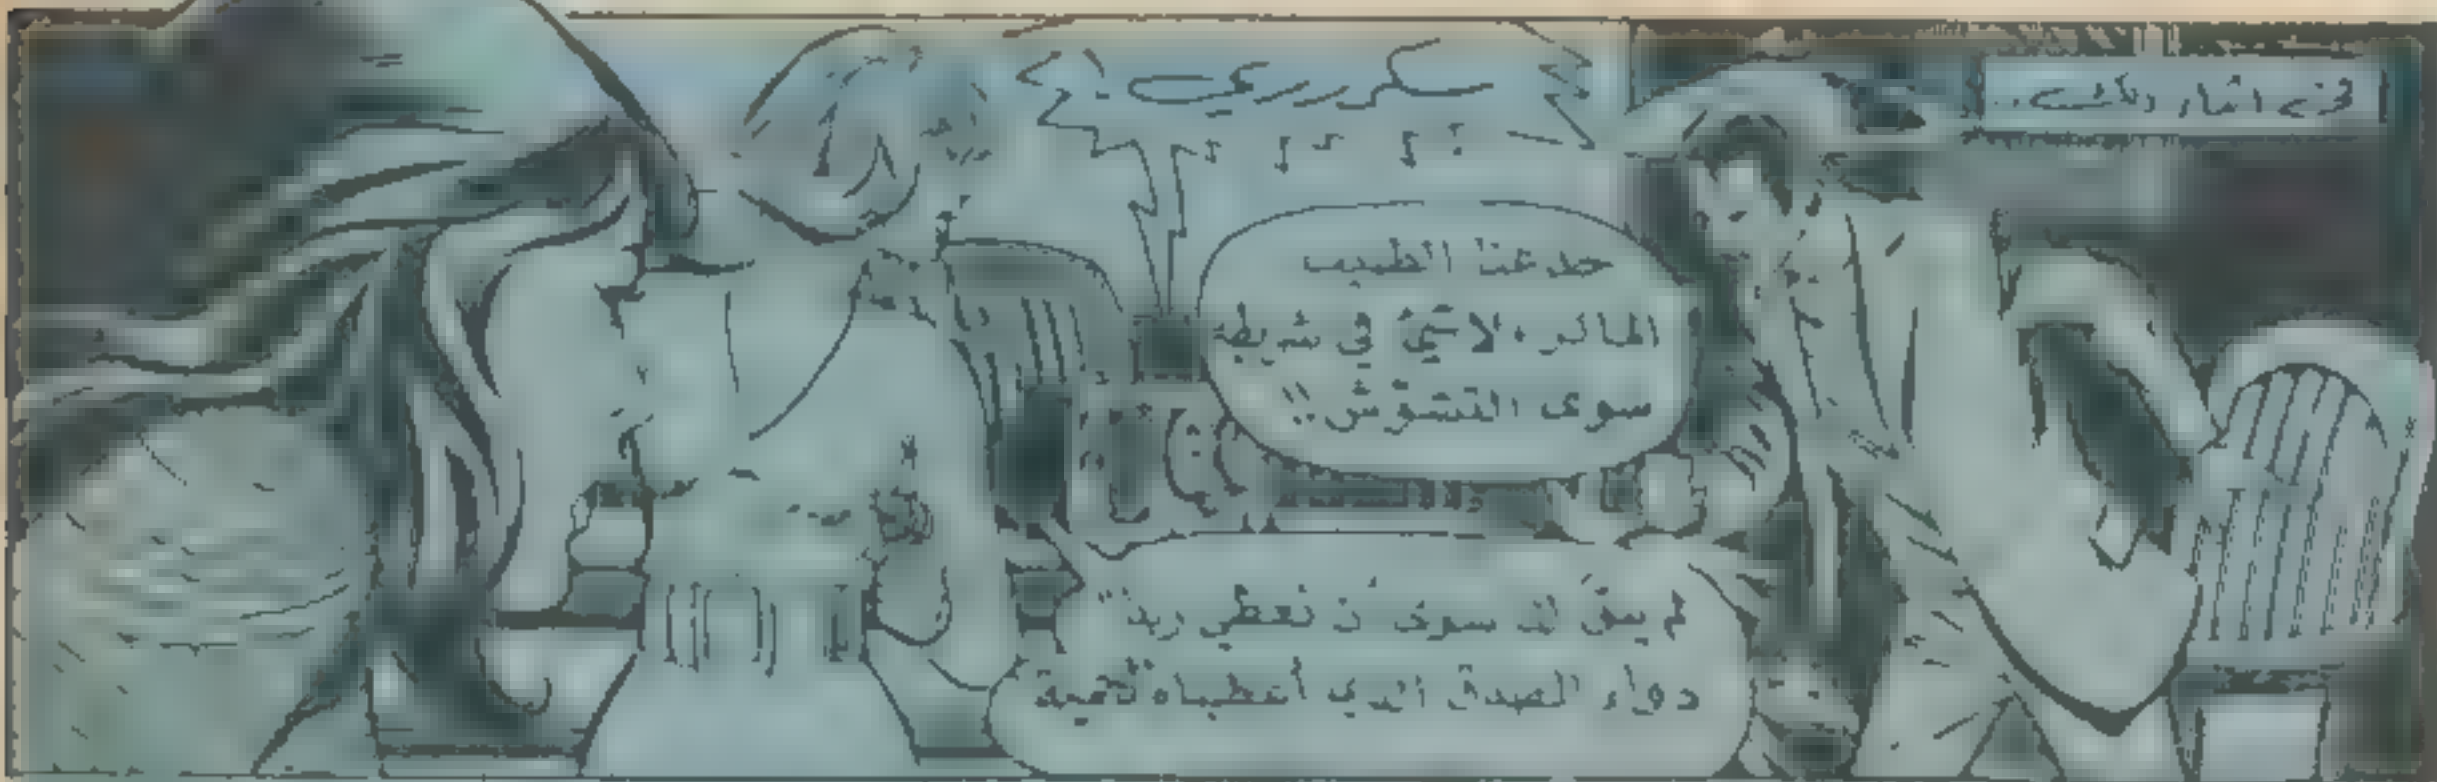 في أثناء ذلك..
خدعنا الطبيب
الماكر، لا شيء في شريطه
سوى التشوّش!!
لم يبق لنا سوى أن نعطي
دواء الصدق الذي أعطيناه